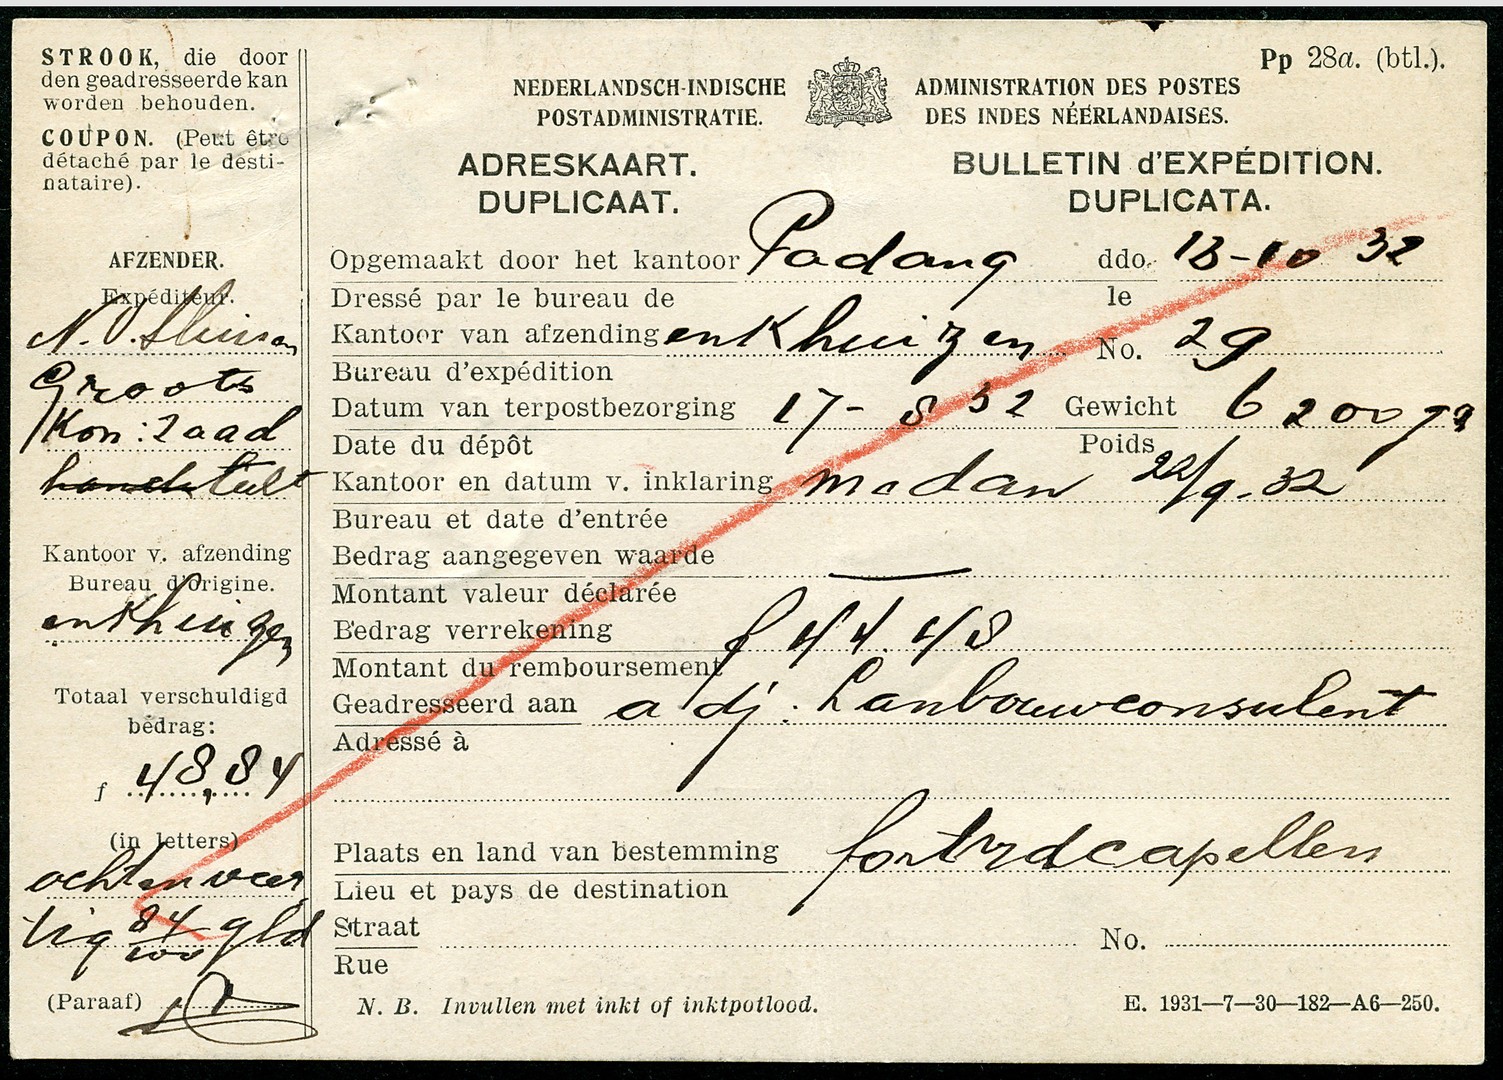 STROOK, die door
den geadresseerde kan
worden behouden.
COUPON. (Peut être
détaché par le desti-
nataire).
AFZENDER.
Expéditeur.
N.V. Sluis en
Groots
Kon: Zaad
handels teelt
Kantoor v. afzending
Bureau d'origine.
enkhuizen
Totaal verschuldigd
bedrag:
f 48,84
(in letters)
acht en veer
tig 84/100 gld
(Paraaf)
Pp 28a. (btl.).
NEDERLANDSCH-INDISCHE
POSTADMINISTRATIE.
ADMINISTRATION DES POSTES
DES INDES NÉERLANDAISES.
ADRESKAART.
DUPLICAAT.
BULLETIN d'EXPÉDITION.
DUPLICATA.
Opgemaakt door het kantoor Padang ddo. 13-10 32
Dressé par le bureau de le
Kantoor van afzending enkhuizen No. 29
Bureau d'expédition
Datum van terpostbezorging 17-8 32 Gewicht 6 200 gr
Date du dépôt Poids
Kantoor en datum v. inklaring medan 22/9-32
Bureau et date d'entrée
Bedrag aangegeven waarde —
Montant valeur déclarée
Bedrag verrekening f 44.48
Montant du remboursement
Geadresseerd aan adj. Lanbouwconsulent
Adressé à
Plaats en land van bestemming fort vdcapellen
Lieu et pays de destination
Straat No.
Rue
N. B. Invullen met inkt of inktpotlood.
E. 1931—7—30—182—A6—250.